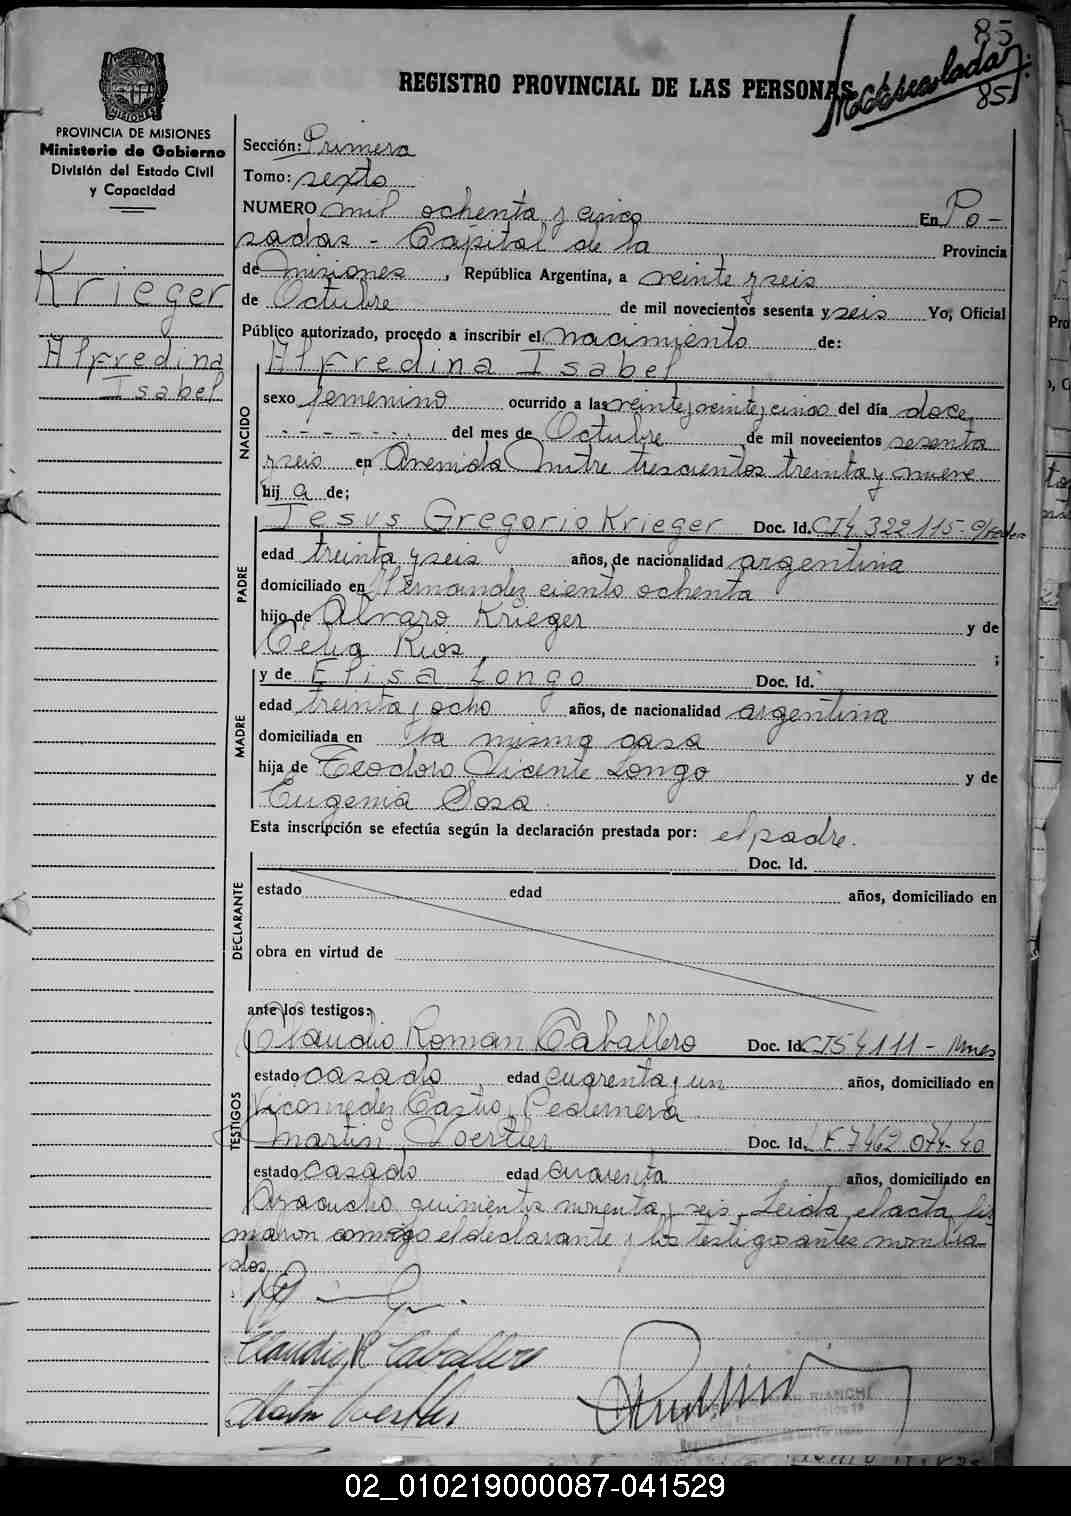 85
REGISTRO PROVINCIAL DE LAS PERSONAS
85
PROVINCIA DE MISIONES
Ministerio de Gobierno
División del Estado Civil
y Capacidad
Krieger
Alfredina
Isabel
Sección: Primera
Tomo: sexto
NUMERO mil ochenta y cinco En Po-
sadas - Capital de la Provincia
de misiones, República Argentina, a veinte y seis
de Octubre de mil novecientos sesenta y seis Yo, Oficial
Público autorizado, procedo a inscribir el nacimiento de:
NACIDO
Alfredina Isabel
sexo femenino ocurrido a las veinte y veinte y cinco del día doce
del mes de Octubre de mil novecientos sesenta
y seis en Avenida Mitre trescientos treinta y nueve
hij a de;
PADRE
Jesus Gregorio Krieger Doc. Id. CI 4 322 115-
edad treinta y seis años, de nacionalidad argentina
domiciliado en Hernandez ciento ochenta
hijo de Alvaro Krieger y de
Celia Rios ;
MADRE
y de Elisa Longo Doc. Id.
edad treinta y ocho años, de nacionalidad argentina
domiciliada en la misma casa
hija de Teodoro Vicente Longo y de
Eugenia Sosa
Esta inscripción se efectúa según la declaración prestada por: el padre.
DECLARANTE
Doc. Id.
estado edad años, domiciliado en
obra en virtud de
ante los testigos:
TESTIGOS
Claudio Roman Caballero Doc. Id. CI 54111 - Mnes
estado casado, edad cuarenta y un años, domiciliado en
Nicomedez Castro, Pedernera
Martin Doc. Id. 7462 074-40
estado casado edad cuarenta años, domiciliado en
quinientos noventa y seis. Leida el acta, fir
maron conmigo el declarante y los testigos antes nombra-
dos
Claudio R Caballero
BIANCHI
02_010219000087-041529